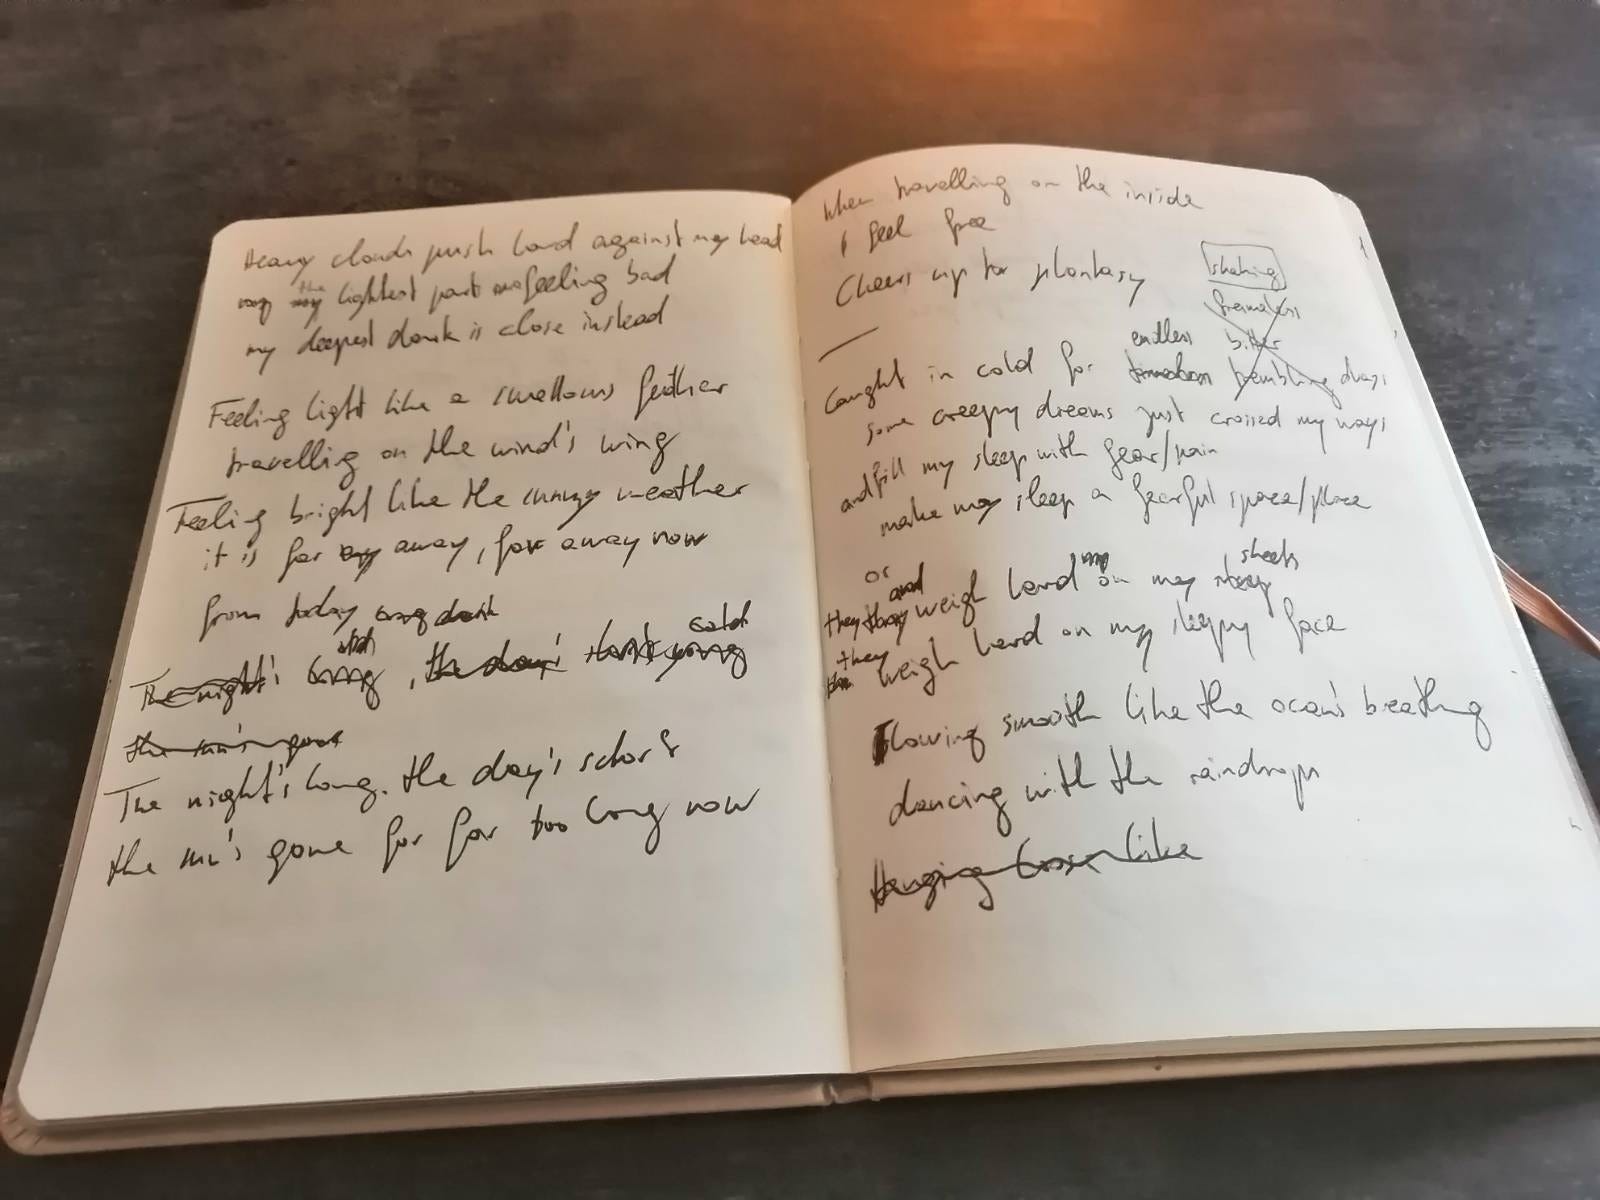 Heavy clouds push hard against my head
my the lightest part feeling bad
my deepest dark is close instead
Feeling light like a swallows feather
travelling on the wind's wing
Feeling bright like the sunny weather
it is far away, far away now
from today
sold
The night's long, the day's
the sun's gone
The night's long. the day's short
the sun's gone for far too long now
When travelling on the inside
I feel free
Cheers up for phantasy
shaking
endless bitter
Caught in cold for trembling days
some creepy dreams just crossed my ways
and fill my sleep with fear/pain
make my sleep a fearful space/place
or
and sheets
they weigh hard on my sleep
they
weigh hard on my sleepy face
Flowing smooth like the ocean's breathing
dancing with the raindrops
Hanging loose like